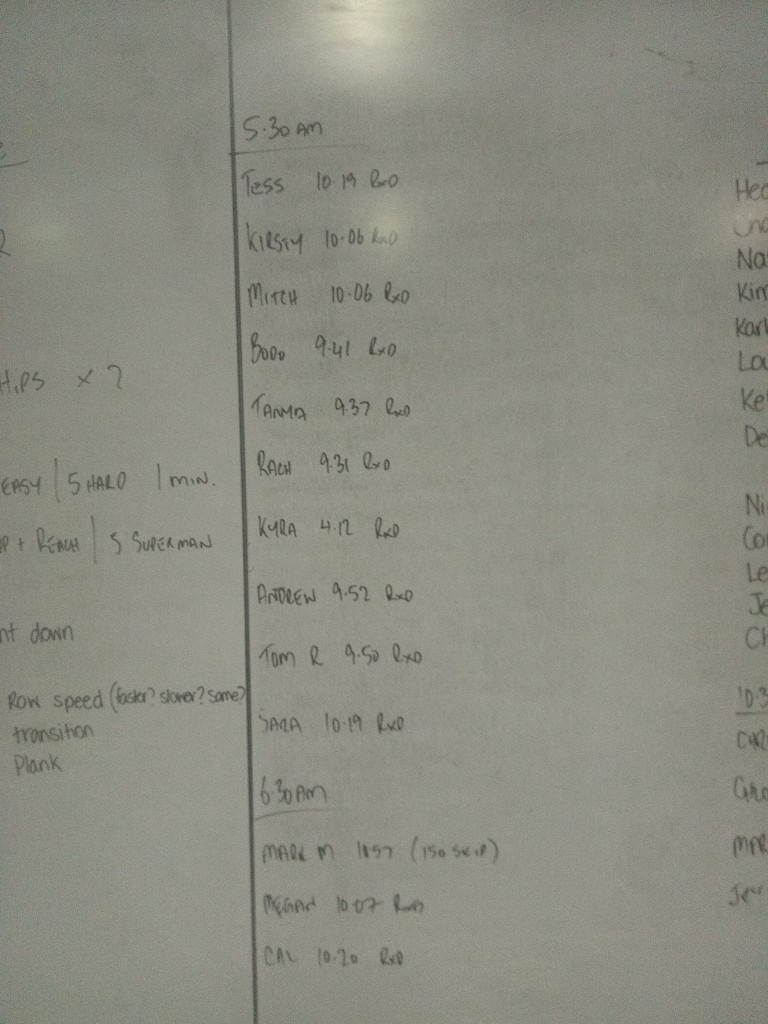 HIPS x 2
EASY | 5 HARD 1 MIN.
UP + REACH | 5 SUPERMAN
nt down
Row speed (faster? slower? same?
transition
Plank
5.30AM
TESS 10.19 RXD
KIRSTY 10.06 RXD
MITCH 10.06 RXD
BODO 9.41 RXD
TANYA 9.37 RXD
RACH 9.31 RXD
KYRA 4.12 RXD
ANDREW 9.52 RXD
TOM R 9.50 RXD
SARA 10.19 RXD
6.30AM
MARK M 10.57 (150 SKIP)
MEGAN 10.07 RXD
CAL 10.20 RXD
Hea
Na
Kim
Karl
Lou
Ke
De
Ni
Co
Le
Je
Ch
10.3
CHR
GRA
MAR